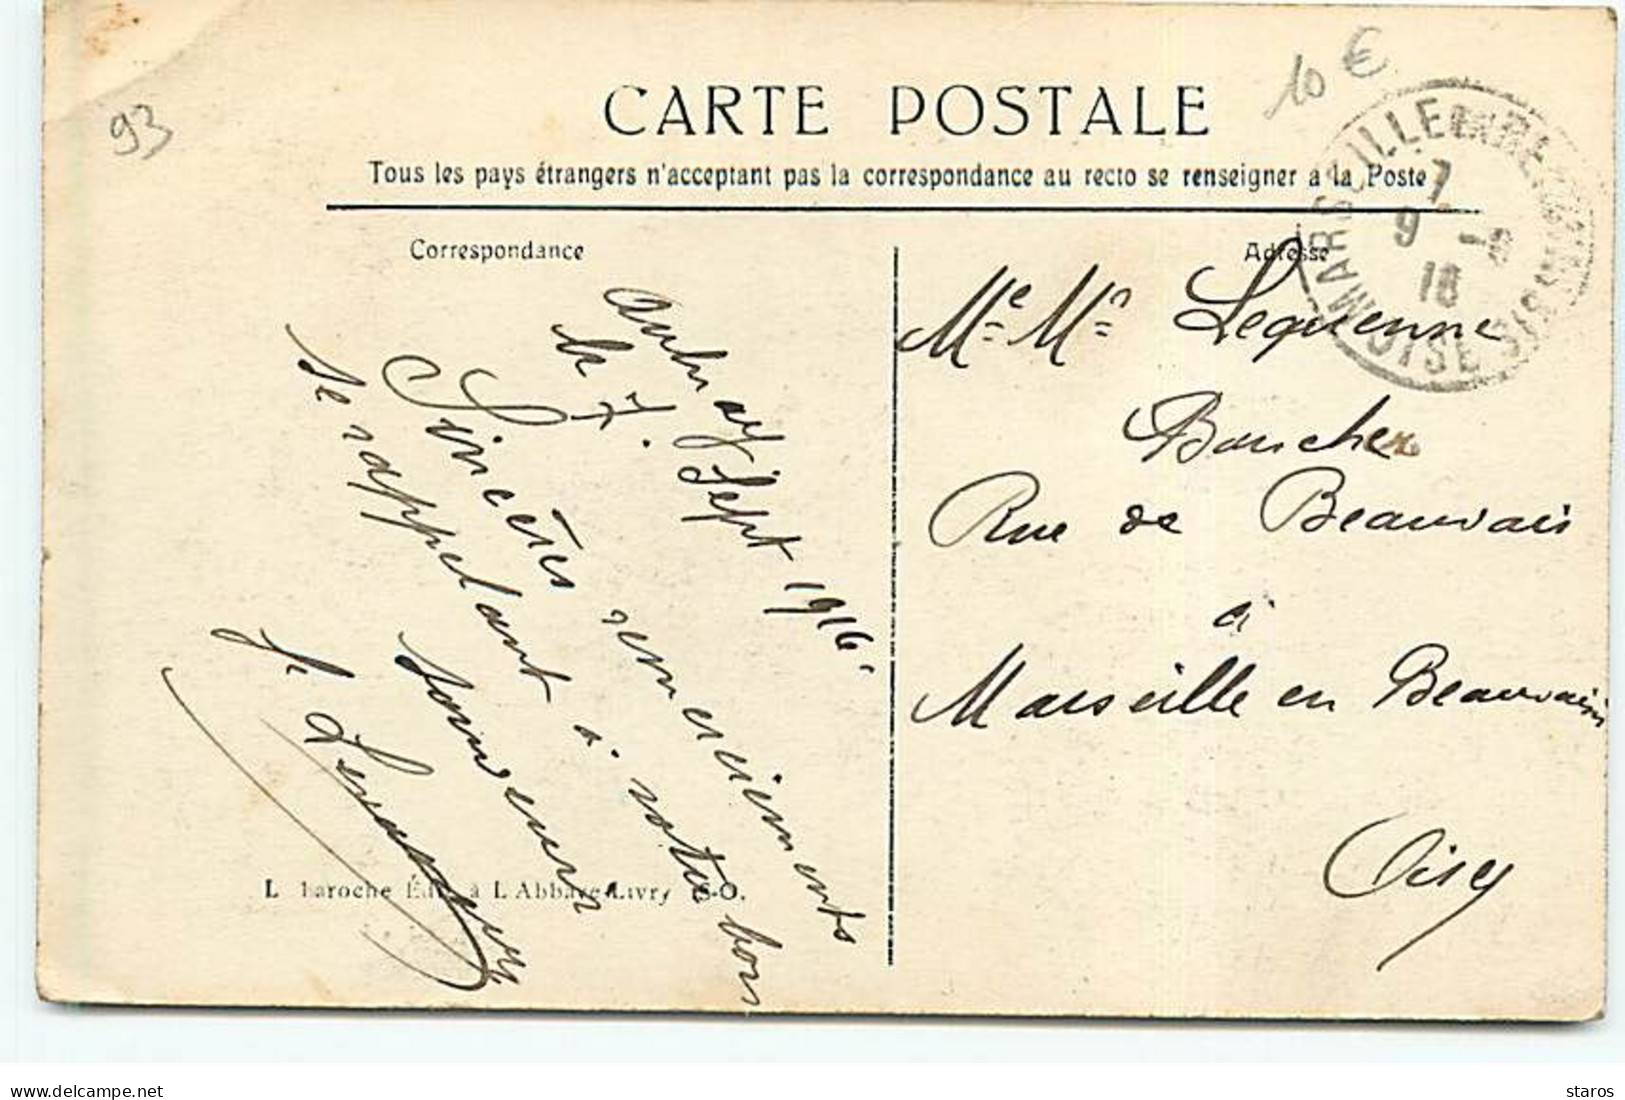 93
10 €
CARTE POSTALE
Tous les pays étrangers n'acceptant pas la correspondance au recto se renseigner à la Poste
Correspondance
Aulnay
le 7. Sept 1916
Sincères remerciements
Se rappelant à votre bon
souvenir
L Laroche Édit. à L'Abbaye-Livry (S-O.
Adresse
Me Mr Lequenne
Boucher
Rue de Beauvais
à
Marseille en Beauvaisis
Oise
MARSEILLE EN BEAUVAISIS
OISE
7
9 -9
16
delcampe.net
staros